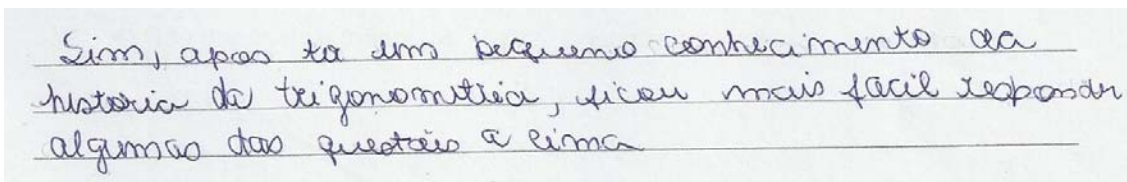 Sim, apos ta um pequeno conhecimento da
historia da trigonometria, ficou mais facil responder
algumas das questóis a cima